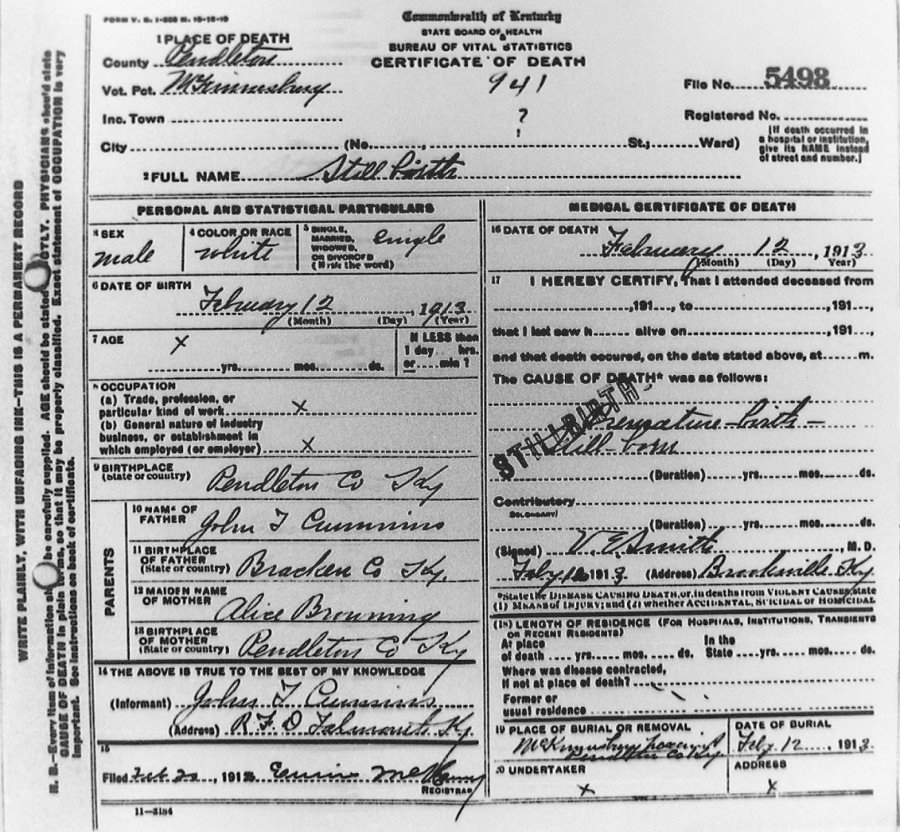 FORM V. S. 1-
Commonwealth of Kentucky
STATE BOARD OF HEALTH
BUREAU OF VITAL STATISTICS
CERTIFICATE OF DEATH
1 PLACE OF DEATH
County Pendleton
Vot. Pct. McKinneysburg
941
File No. 5498
Inc. Town
?
Registered No.
City (No. , St.; Ward)
[If death occurred in a hospital or institution, give its NAME instead of street and number.]
2 FULL NAME Still Birth
PERSONAL AND STATISTICAL PARTICULARS
3 SEX
male
4 COLOR OR RACE
white
5 SINGLE, MARRIED, WIDOWED OR DIVORCED (Write the word)
Single
6 DATE OF BIRTH
February 12, 1913
(Month) (Day) (Year)
7 AGE
x
yrs. mos. ds.
If LESS than 1 day hrs. or min?
8 OCCUPATION
(a) Trade, profession, or particular kind of work x
(b) General nature of industry
business, or establishment in
which employed (or employer) x
9 BIRTHPLACE
(State or country) Pendleton Co Ky
PARENTS
10 NAME OF FATHER
John T Cummins
11 BIRTHPLACE OF FATHER
(State or country) Bracken Co Ky.
12 MAIDEN NAME OF MOTHER
Alice Browning
13 BIRTHPLACE OF MOTHER
(State or country) Pendleton Co Ky
14 THE ABOVE IS TRUE TO THE BEST OF MY KNOWLEDGE
(Informant) John T Cummins
(Address) R.F.D Falmouth Ky.
15
Filed Feb 20, 191
REGISTRAR
11-3184
MEDICAL CERTIFICATE OF DEATH
16 DATE OF DEATH
February 12, 1913
(Month) (Day) (Year)
17 I HEREBY CERTIFY, That I attended deceased from
,191 , to ,191 ,
that I last saw h alive on ,191 ,
and that death occured, on the date stated above, at m.
The CAUSE OF DEATH* was as follows:
STILLBIRTH
Premature-birth-
Still-born
(Duration) yrs. mos. ds.
Contributory
SECONDARY)
(Duration) yrs. mos. ds.
(Signed) V. E. Smith M. D.
Feby 1913 (Address) Brooksville Ky
*State the DISEASE CAUSING DEATH, or, in deaths from VIOLENT CAUSES, state
(1) MEANS of INJURY; and (2) whether ACCIDENTAL, SUICIDAL or HOMICIDAL
(18) LENGTH OF RESIDENCE (FOR HOSPITALS, INSTITUTIONS, TRANSIENTS
OR RECENT RESIDENTS)
At place of death yrs. mos. ds. In the State yrs. mos. ds.
Where was disease contracted,
If not at place of death?
Former or
usual residence
19 PLACE OF BURIAL OR REMOVAL
McKinneysburg
Pendleton Co Ky
DATE OF BURIAL
Feby 12, 1913
20 UNDERTAKER
x
ADDRESS
x
WRITE PLAINLY, WITH UNFADING INK—THIS IS A PERMANENT RECORD
N. B.—Every item of information should be carefully supplied. AGE should be stated EXACTLY. PHYSICIANS should state
CAUSE OF DEATH in plain terms, so that it may be properly classified. Exact statement of OCCUPATION is very
important. See instructions on back of certificate.